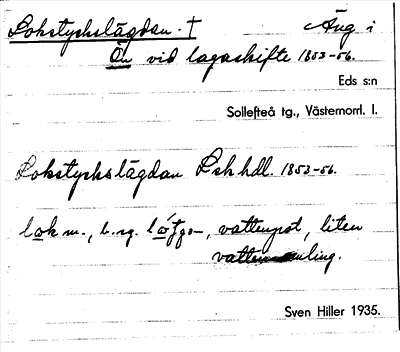 Lokstyckslägdan. † Äng i
Ön vid lagaskifte 1853-56.
Eds s:n
Sollefteå tg., Västernorrl. l.
Lokstyckslägdan Lsk hdl. 1853-56.
lok m., b. sg. , vattenpöl, liten
vattensamling.
Sven Hiller 1935.